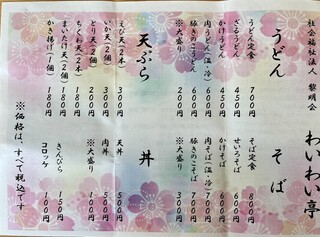 社会福祉法人 黎明会
わいわい亭
うどん
うどん定食 700円
ざるうどん 450円
かけうどん 450円
肉うどん(温・冷) 600円
豚きのこうどん 600円
※大盛り 200円
そば
そば定食 800円
せいろそば 600円
かけそば 600円
肉そば(温・冷) 700円
豚きのこそば 700円
※大盛り 300円
天ぷら
えび天(2本) 300円
いか天(2個) 300円
とり天(2個) 200円
ちくわ天(2本) 180円
まいたけ天(2個) 180円
かき揚げ(1個) 180円
丼
天丼 500円
肉丼 500円
※大盛り 100円
きんぴら 150円
コロッケ 100円
※価格は、すべて税込です